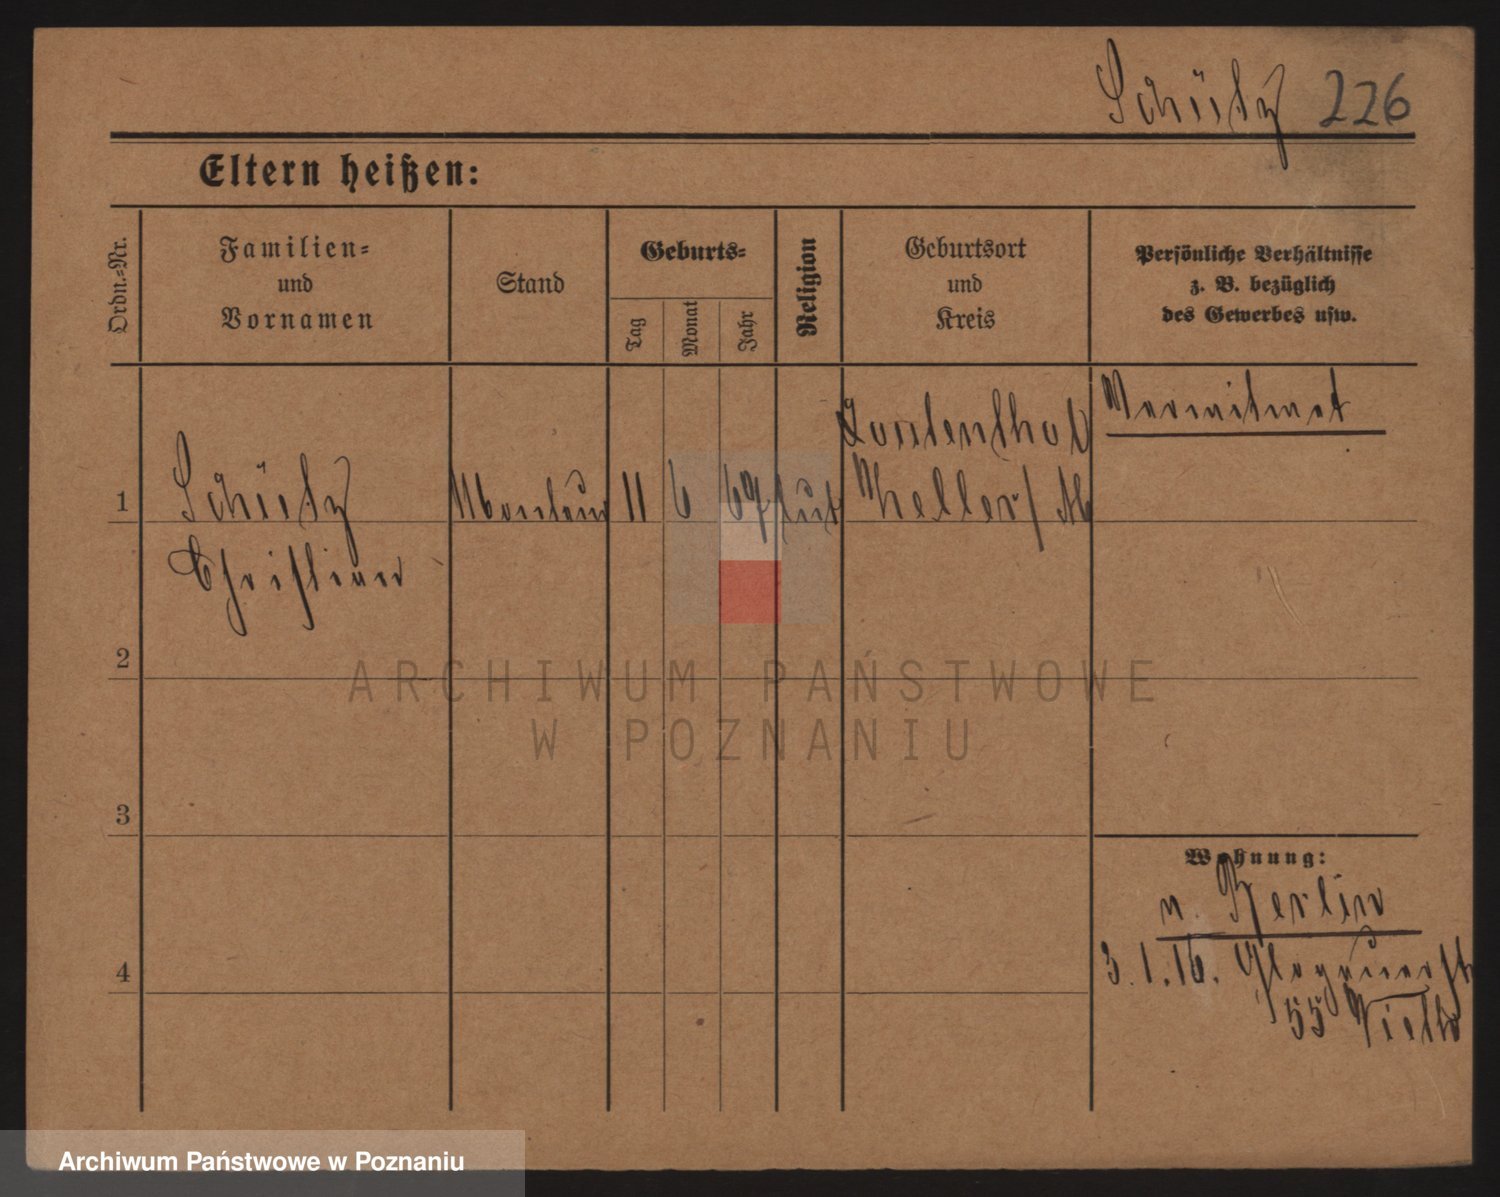 Schütz 226
Eltern heißen:
Ordn.-Nr.
Familien-
und
Vornamen
Stand
Geburts-
Tag
Monat
Jahr
Religion
Geburtsort
und
Kreis
Persönliche Verhältnisse
z. B. bezüglich
des Gewerbes usw.
1
Schütz
Christian
Monteur
11
6
69
lut
2
3
4
Wohnung:
n. Berlin
3.1.16. Glogauerstr
55
ARCHIWUM PAŃSTWOWE
W POZNANIU
Archiwum Państwowe w Poznaniu